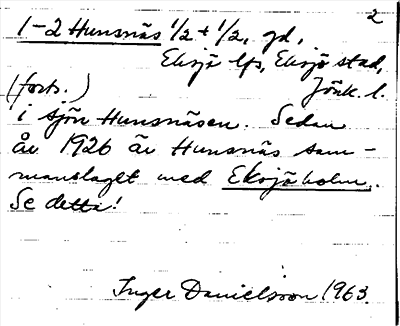 2
1-2 Hunsnäs 1/2 + 1/2, gd,
Eksjö lfs, Eksjö stad,
(forts.) Jönk. l.
i sjön Hunsnäsen. Sedan
år 1926 är Hunsnäs sam-
manslaget med Eksjöholm.
Se detta!
Inger Danielsson 1963.